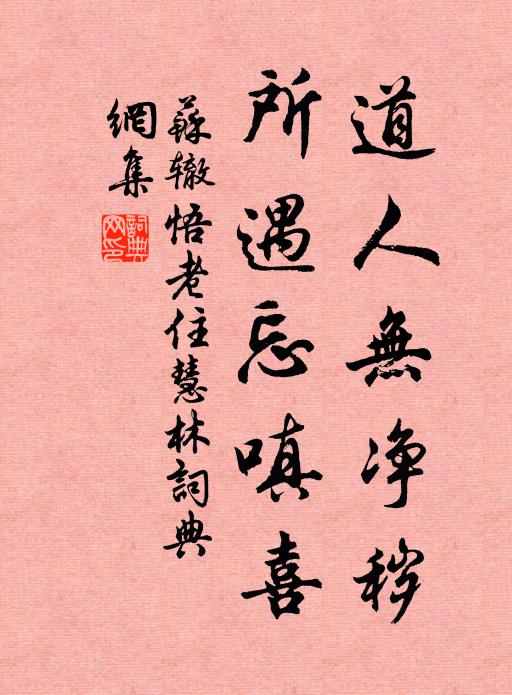 道人無净穢
所遇忘嗔喜
蘇辙悟老住慧林詞典
網集
詞典
网印